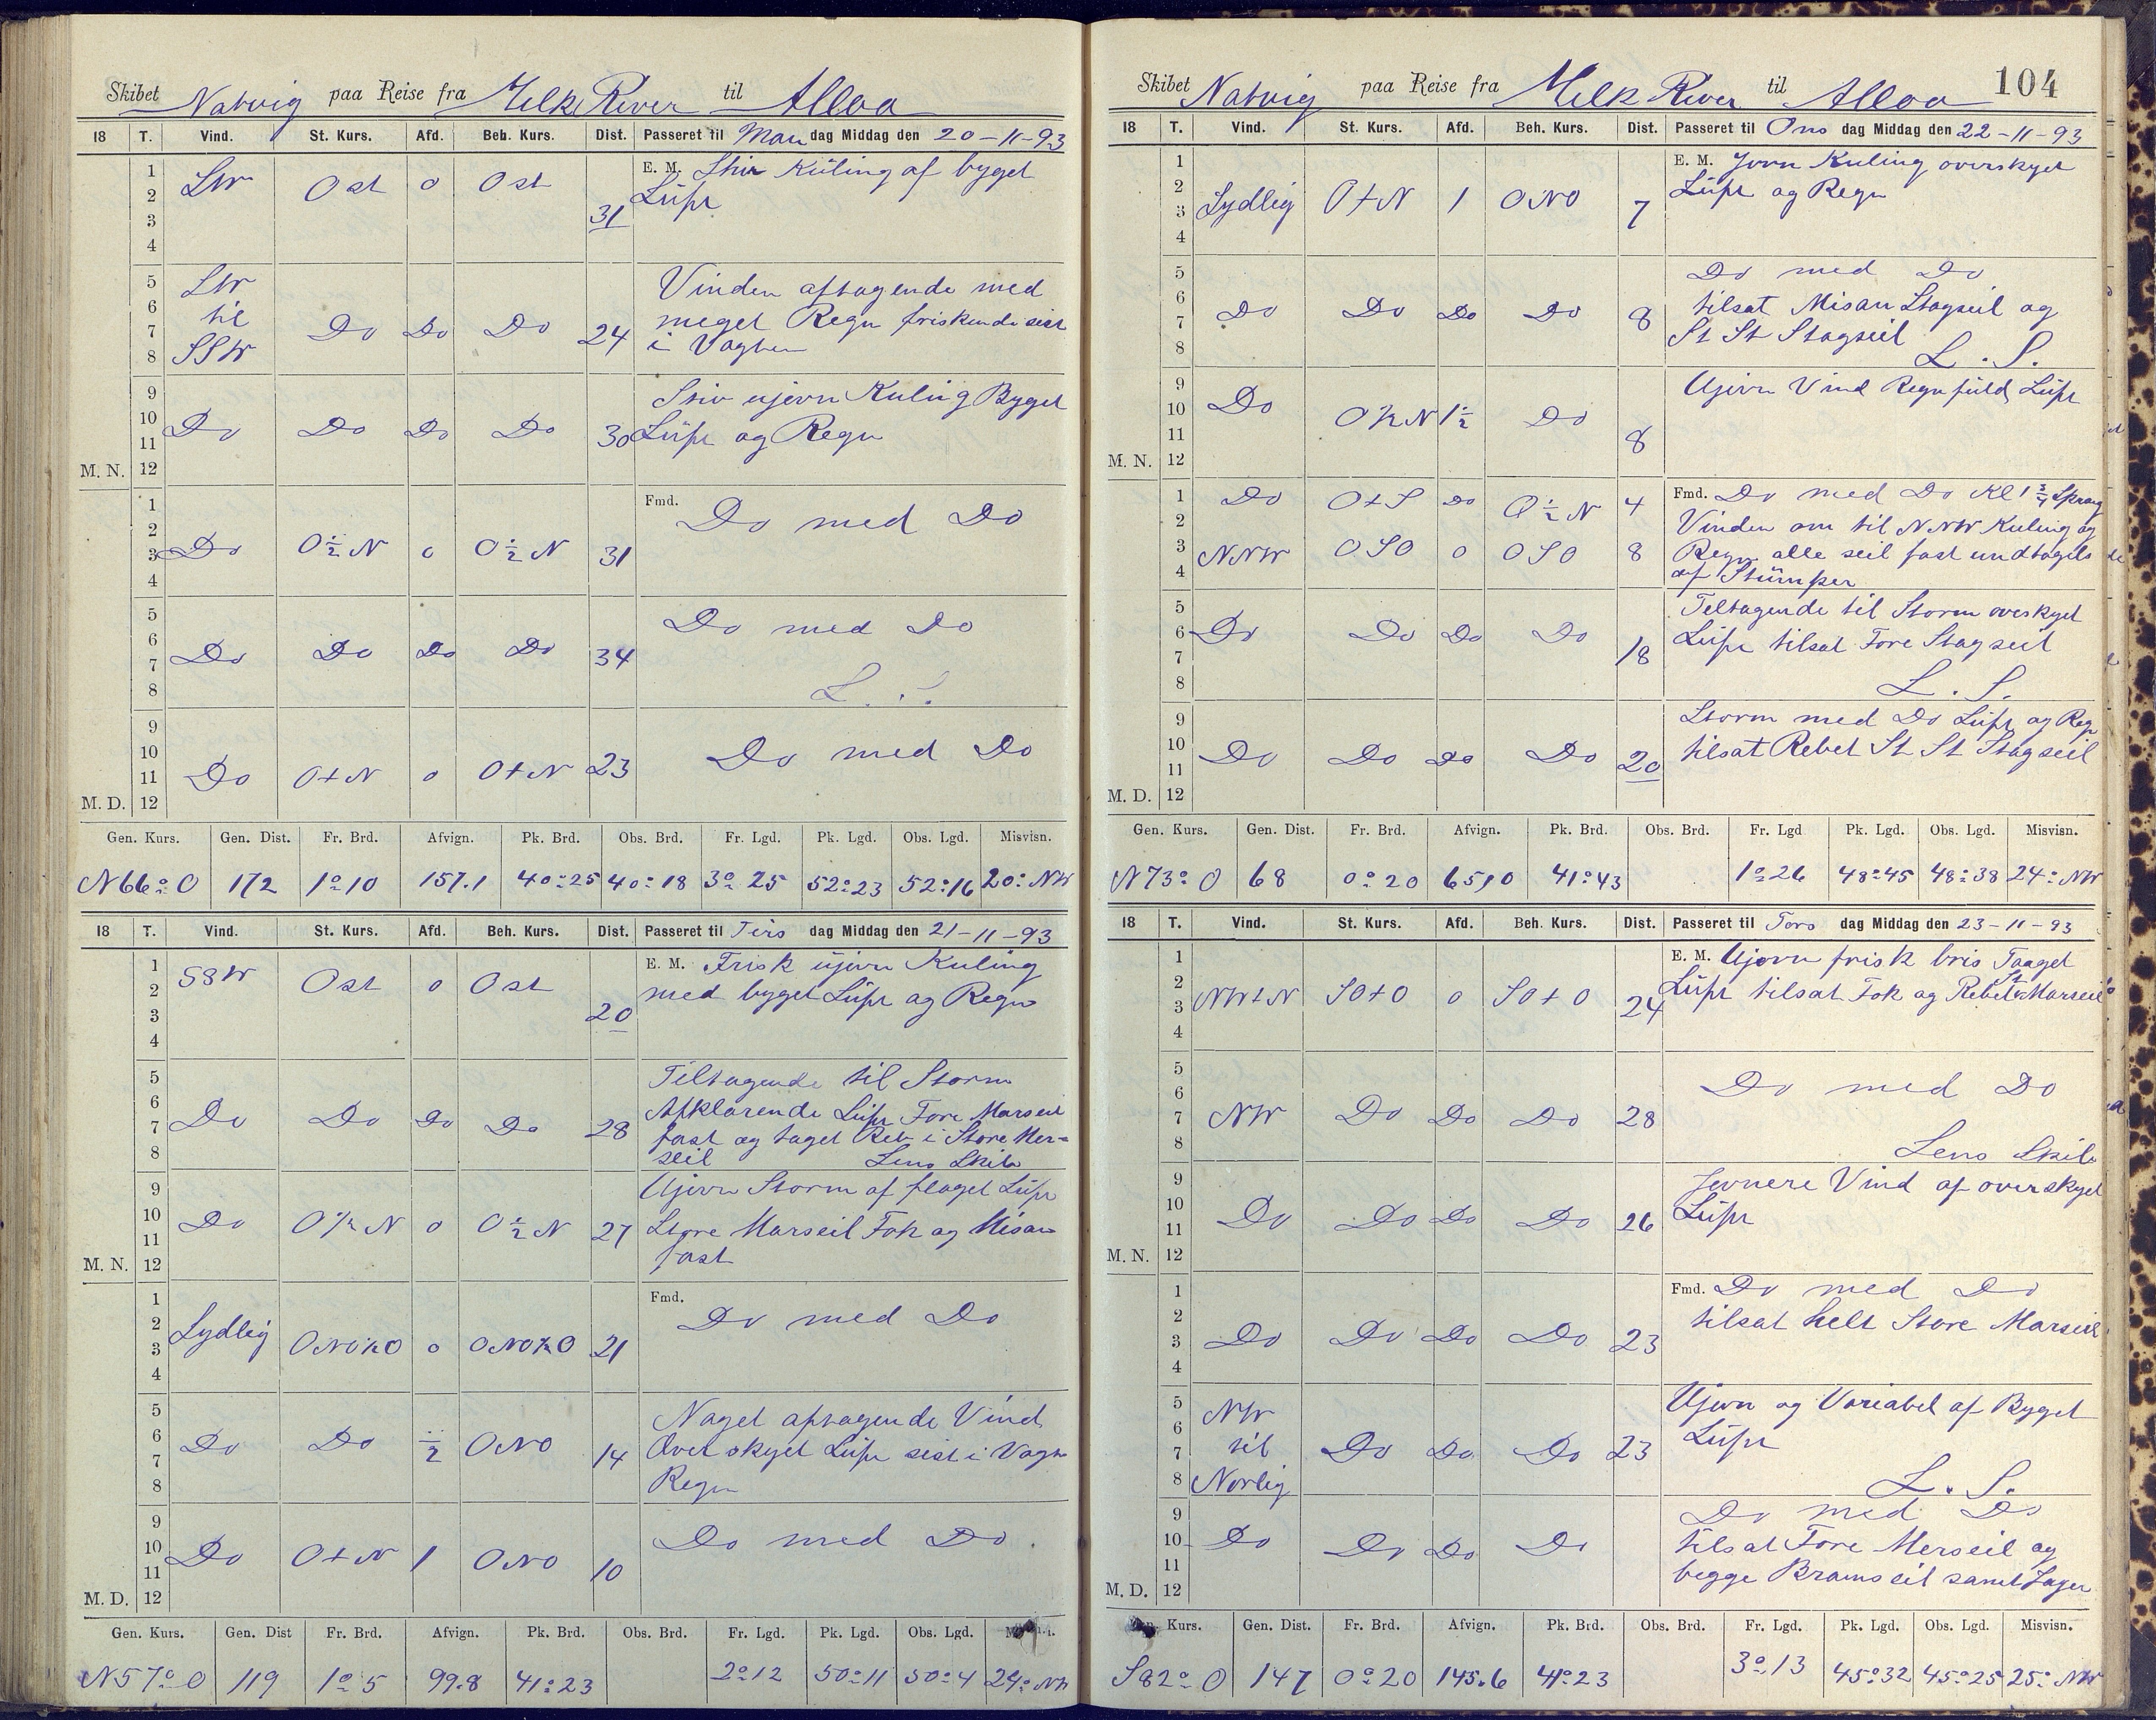 Skibet Natvig paa Reise fra Milk River til Alloa
18 T. Vind. St. Kurs. Afd. Beh. Kurs. Dist. Passeret til Man dag Middag den 20-11-93
1 2 3 4 SW Ost 0 Ost 31 E. M. Stiv Küling af byget
Lüft
5 6 7 8 SW til SSW Do Do Do 24 Vinden aftagende med
meget Regn friskende sist
i Vagten
9 10 11 M. N. 12 Do Do Do Do 30 Stiv ujevn Kuling Byget
Lüft og Regn
1 2 3 4 Do O ½ N 0 O ½ N 31 Fmd. Do med Do
5 6 7 8 Do Do Do Do 34 Do med Do
L. S.
9 10 11 M. D. 12 Do O+N 0 O+N 23 Do med Do
Gen. Kurs. Gen. Dist. Fr. Brd. Afvign. Pk. Brd. Obs. Brd. Fr. Lgd. Pk. Lgd. Obs. Lgd. Misvisn.
N 66° O 172 1° 10 157.1 40° 25 40° 18 3° 25 52° 23 52° 16 20° NW
18 T. Vind. St. Kurs. Afd. Beh. Kurs. Dist. Passeret til Tirs dag Middag den 21-11-93
1 2 3 4 SSW Ost 0 Ost 20 E. M. Frisk üjevn Kuling
med byget Lüft og Regn
5 6 7 8 Do Do Do Do 28 Tiltagende til Storm
Afklarende Lüft Fore Marseil
fast og taget Reb i Store Mer=
seil Lens Skib
9 10 11 M. N. 12 Do O ½ N 0 O ½ N 27 Ujevn Storm af flaget Lüft
Store Marseil Fok og Misan
fast
1 2 3 4 Sydlig ONO ½ O 0 ONO ½ O 21 Fmd. Do med Do
5 6 7 8 Do Do ½ ONO 14 Naget aftagende Vind
Overskyet Lüft sist i Vagt
Regn
9 10 11 M. D. 12 Do O+N 1 ONO 10 Do med Do
Gen. Kurs. Gen. Dist Fr. Brd. Afvign. Pk. Brd. Obs. Brd. Fr. Lgd. Pk. Lgd. Obs. Lgd.
N 57° O 119 1° 5 99.8 41° 23 2° 12 50° 11 50° 4 24° NW
Skibet Natvig paa Reise fra Milk River til Alloa 104
18 T. Vind. St. Kurs. Afd. Beh. Kurs. Dist. Passeret til Ons dag Middag den 22-11-93
1 2 3 4 Sydlig O+N 1 ONO 7 E. M. Jevn Kuling overskyet
Lüft og Regn
5 6 7 8 Do Do Do Do 8 Do med Do
tilsat Misan Stagseil og
St St Stagseil
L. S.
9 10 11 M. N. 12 Do O ½ N 1½ Do 8 Ujevn Vind Regnfuld Lüft
1 2 Do O+S Do O ½ N 4 Fmd. Do med Do Kl 1 ¾ Sprang
3 4 NNW OSO 0 OSO 8 Vinden om til NNW Kuling og
Regn alle seil fast undtagels
af Stümper
5 6 7 8 Do Do Do Do 18 Teltagende til Storm overskyet
Lüft tilsat Fore Stagseil
L. S.
9 10 11 M. D. 12 Do Do Do Do 20 Storm med Do Lüft og Regn
tilsat Rebet St St Stagseil
Gen. Kurs. Gen. Dist. Fr. Brd. Afvign. Pk. Brd. Obs. Brd. Fr. Lgd Pk. Lgd. Obs. Lgd. Misvisn.
N 73° O 68 0° 20 65,0 41° 43 1° 26 48° 45 48° 38 24° NW
18 T. Vind. St. Kurs. Afd. Beh. Kurs. Dist. Passeret til Tors dag Middag den 23-11-93
1 2 3 4 NW+N SO+O 0 SO+O 24 E. M. Ujevn frisk bris Taaget
Lüft tilsat Fok og Rebet St Marseil
5 6 7 8 NW Do Do Do 28 Do med Do
Lens Skib
9 10 11 M. N. 12 Do Do Do Do 26 Jevnere Vind af overskyet
Lüft
1 2 3 4 Do Do Do Do 23 Fmd. Do med Do
tilsat helt Store Marseil
5 6 7 8 NW til Norlig Do Do Do 23 Ujevn og Variabel af Byget
Lüft
L. S.
9 10 11 M. D. 12 Do Do Do Do Do med Do
tilsat Fore Merseil og
begge Bramseil samt Jager
Kurs. Gen. Dist. Fr. Brd. Afvign. Pk. Brd. Obs. Brd. Fr. Lgd. Pk. Lgd. Obs. Lgd. Misvisn.
S 82° O 147 0° 20 145.6 41° 23 3° 13 45° 32 45° 25 25° NW